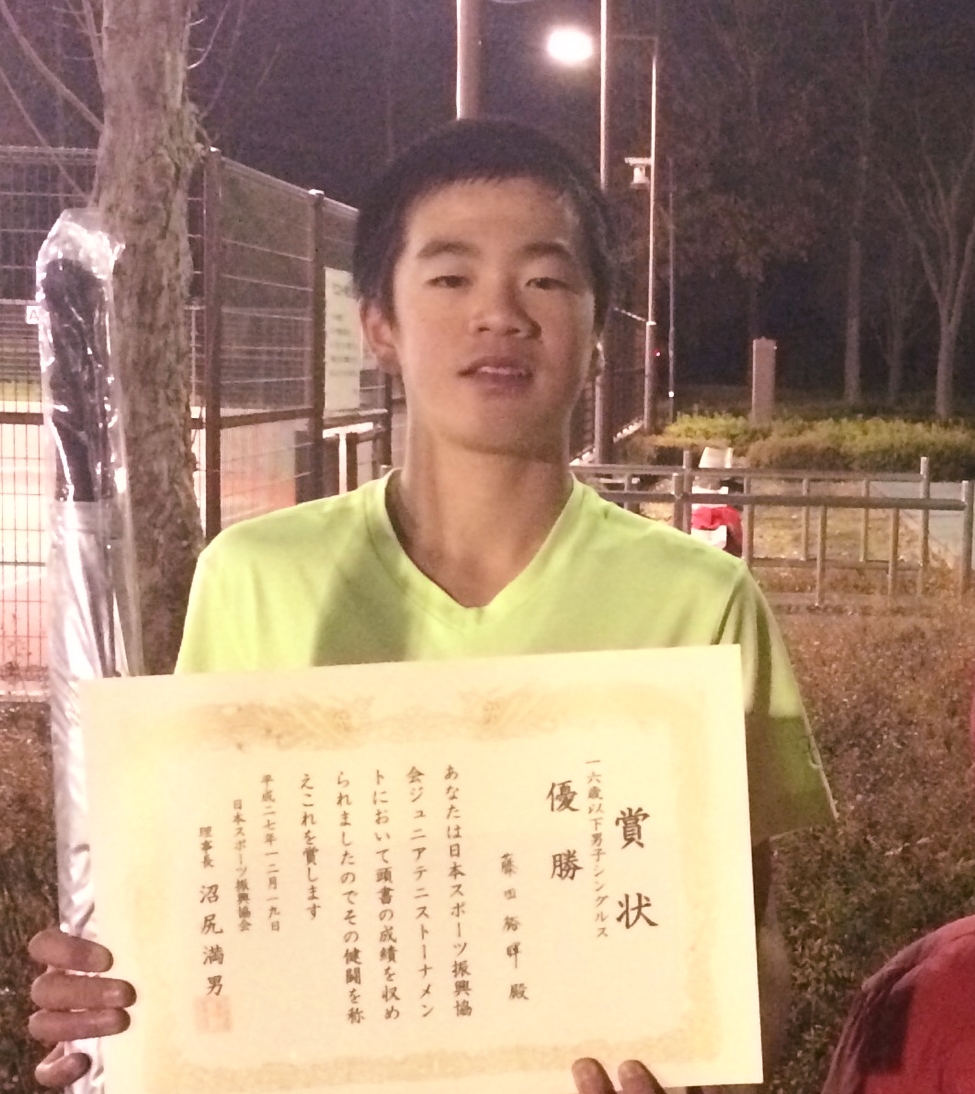 賞状
一六歳以下男子シングルス
優勝
藤田
殿
あなたは日本スポーツ振興協
会ジュニアテニストーナメン
トにおいて頭書の成績を収め
られましたのでその健闘を称
えこれを賞します
平成二七年一二月一九日
日本スポーツ振興協会
理事長 沼尻満男
A